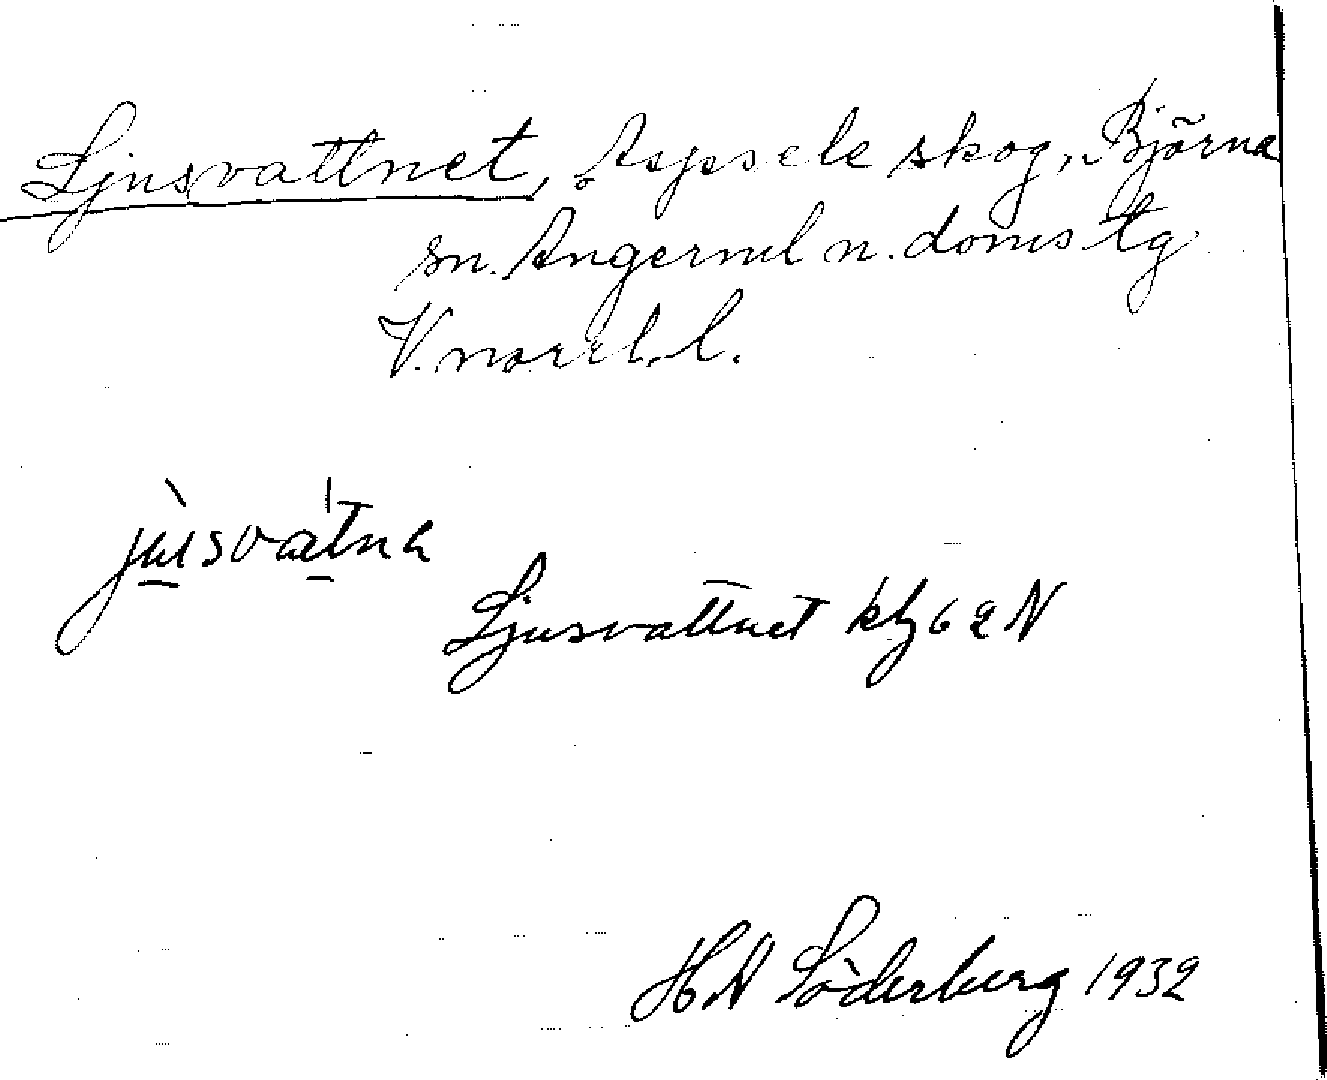 Ljusvattnet, Aspsele skog, Björna
sn. Ångerml n. doms tg
V. norrl. l.
jusvatna
Ljusvattnet kbl 62 N
H A Söderberg 1932